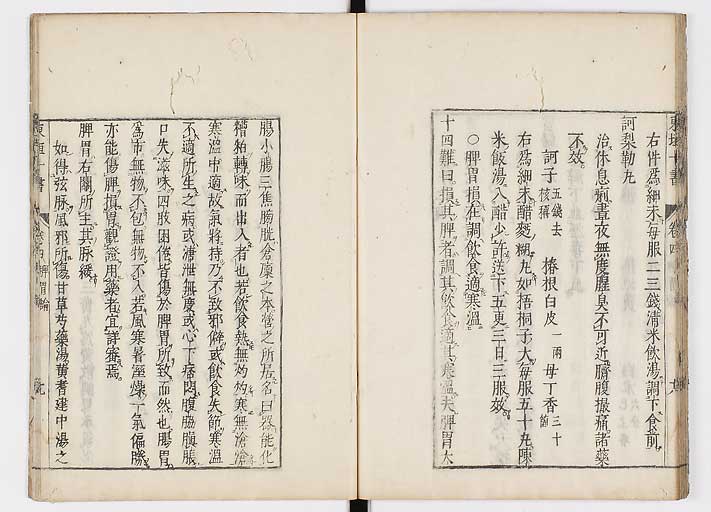 東垣十書 卷四
右件爲細末每服二三錢清米飲湯調下食前
訶梨勒丸
治休息痢晝夜無度腥臭不可近臍腹撮痛諸藥
不效
訶子五錢去核稱 樁根白皮一兩 母丁香三十箇
右爲細末醋麪糊丸如梧桐子大每服五十丸陳
米飯湯入醋少許送下五更三日三服效
○脾胃損在調飲食適寒溫
十四難曰損其脾者調其飲食適其寒溫夫脾胃大
腸小腸三焦膀胱倉廩之本營之所居名曰器能化
糟粕轉味而出入者也若飲食熱無灼灼寒無滄滄
寒溫中適故氣將持乃不致邪僻或飲食失節寒溫
不適所生之病或溏泄無度或心下痞悶腹脇䐜脹
口失滋味四肢困倦皆傷於脾胃所致而然也腸胃
爲市無物不包無物不入若風寒暑濕燥一氣偏勝
亦能傷脾損胃觀證用藥者宜詳審焉
脾胃右關所主其脉緩
如得弦脉風邪所傷甘草芍藥湯黃耆建中湯之
東垣十書 脾胃論